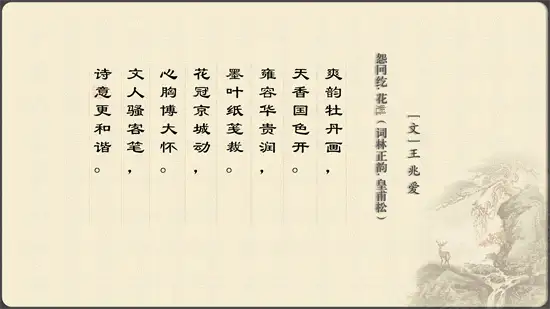 [文]王兆爱
怨回纥·花（词林正韵·皇甫松）
爽韵牡丹画，
天香国色开。
雍容华贵润，
墨叶纸笺裁。
花冠京城动，
心胸博大怀。
文人骚客笔，
诗意更和谐。